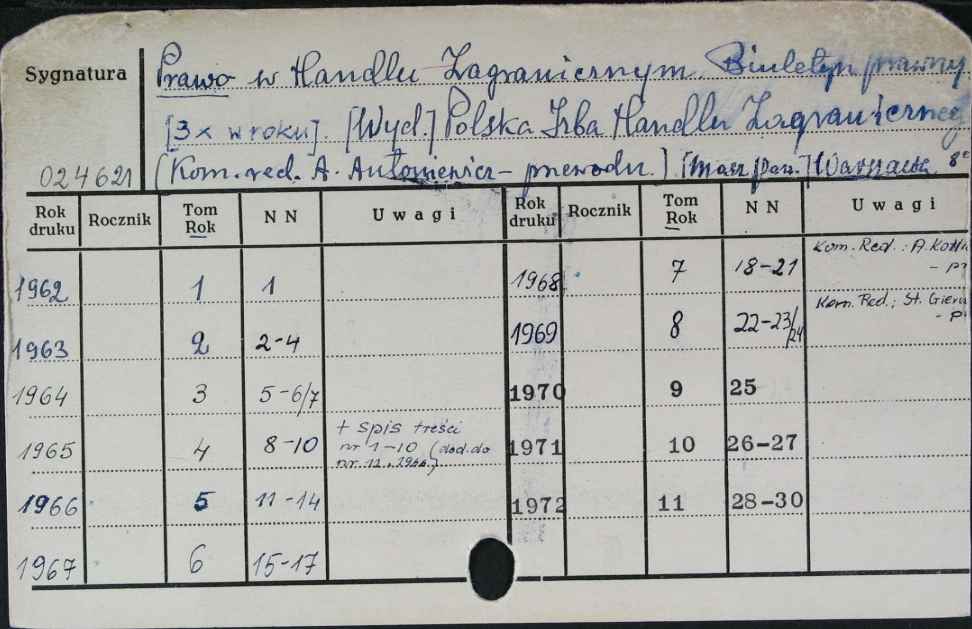 Sygnatura
Prawo w Handlu Zagranicznym. Biuletyn prawny.
[3x w roku]. [Wyd.] Polska Izba Handlu Zagranicznego
024621 (Kom. red. A. Antoniewicz – przewodn.) [Masz. pow.] Warszawa 8°
Rok druku Rocznik Tom Rok NN Uwagi Rok druku Rocznik Tom Rok NN Uwagi
1962 1 1 1968 7 18-21 Kom. Red.: A.
1963 2 2-4 1969 8 22-23/24 Kom. Red.: St.
1964 3 5-6/7 1970 9 25
1965 4 8-10 + spis treści nr 1-10 (dod. do nr. 12, 1966.) 1971 10 26-27
1966 5 11-14 1972 11 28-30
1967 6 15-17